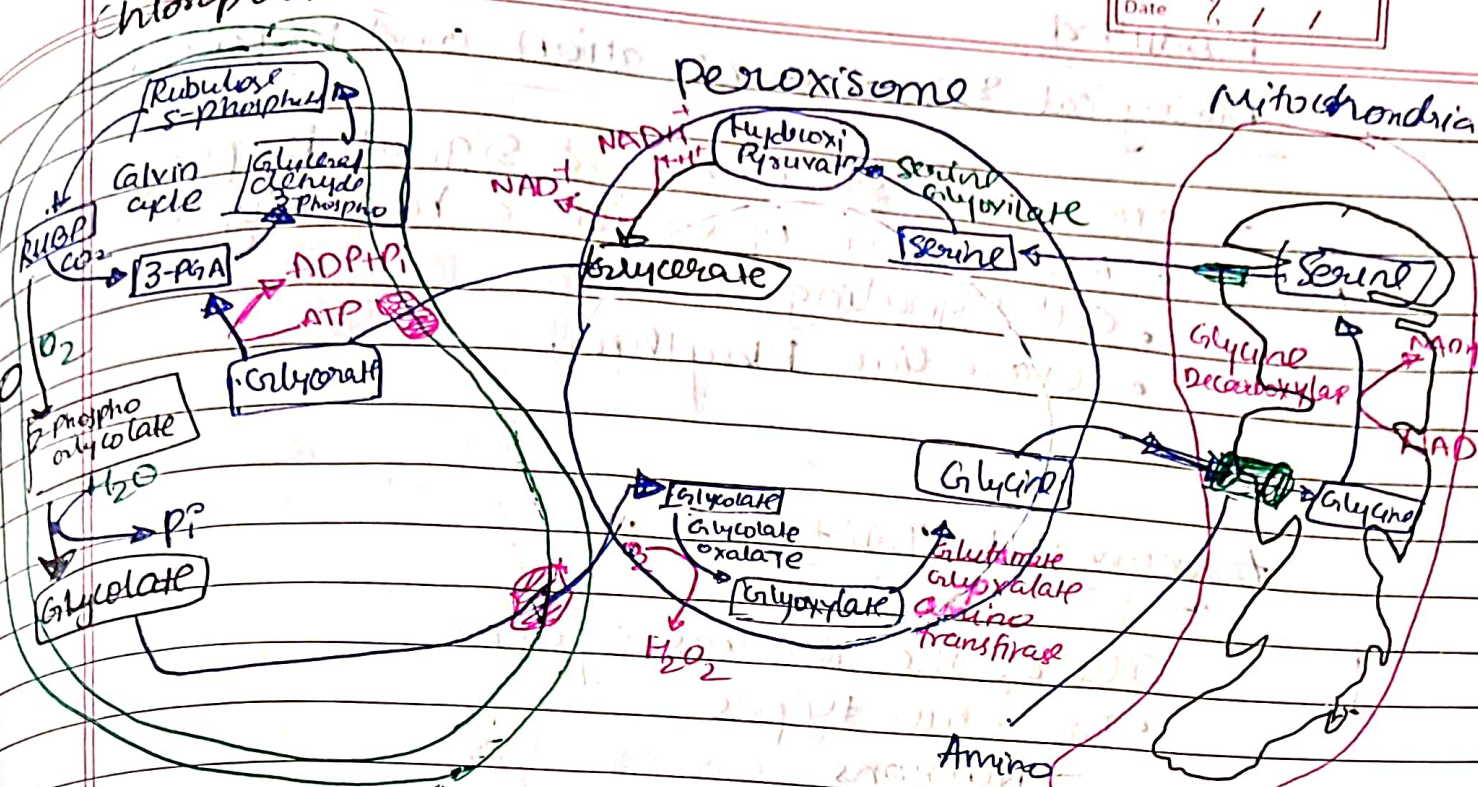 Date / / /
Peroxisome
Mitochondria
Rubulose
5-phosphate
Calvin
cycle
Glyceral
dehyde
3 phospho
RUBP
CO2
3-PGA
ADP+Pi
ATP
Glycerate
O2
2-phospho
glycolate
H2O
Pi
Glycolate
NADH
+H+
NAD+
Hydroxi
Pyruvate
Serine
Glyoxilate
Serine
Glycerate
Glycine
Glycolate
Glycolate
oxalate
H2O2
Glyoxylate
Glutamate
Glyoxalate
amino
transfirase
Serine
Glycine
Decarboxylase
NADH
NAD
Glycine
Amino